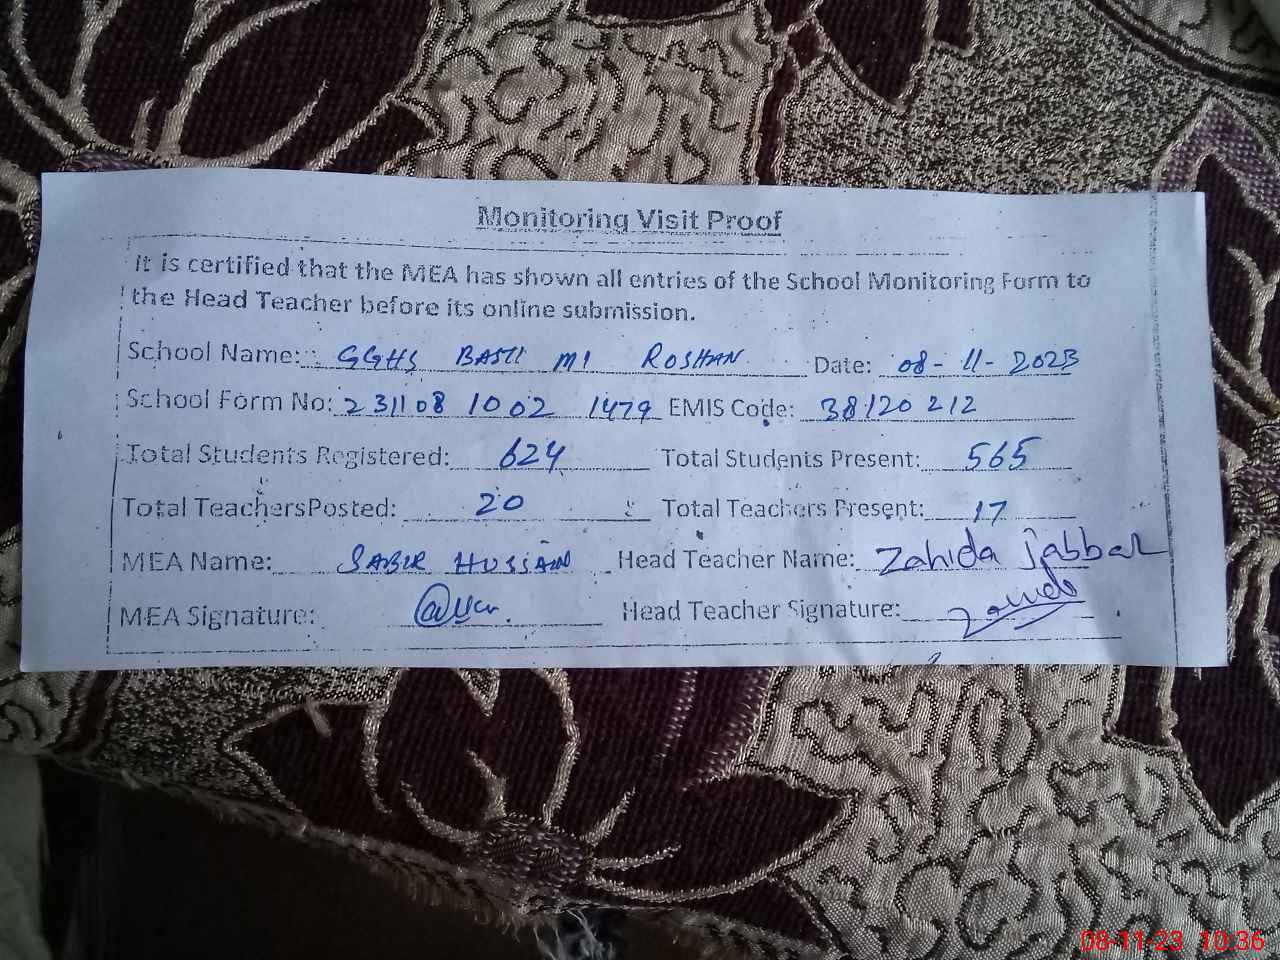 Monitoring Visit Proof
It is certified that the MEA has shown all entries of the School Monitoring Form to
the Head Teacher before its online submission.
School Name: GGHS BASTI MI ROSHAN Date: 08-11-2023
School Form No: 231108 1002 1479 EMIS Code: 38120212
Total Students Registered: 624 Total Students Present: 565
Total TeachersPosted: 20 Total Teachers Present: 17
MEA Name: SABIR HUSSAIN Head Teacher Name: Zahida Jabbar
MEA Signature: Head Teacher Signature:
08-11-23 10:36